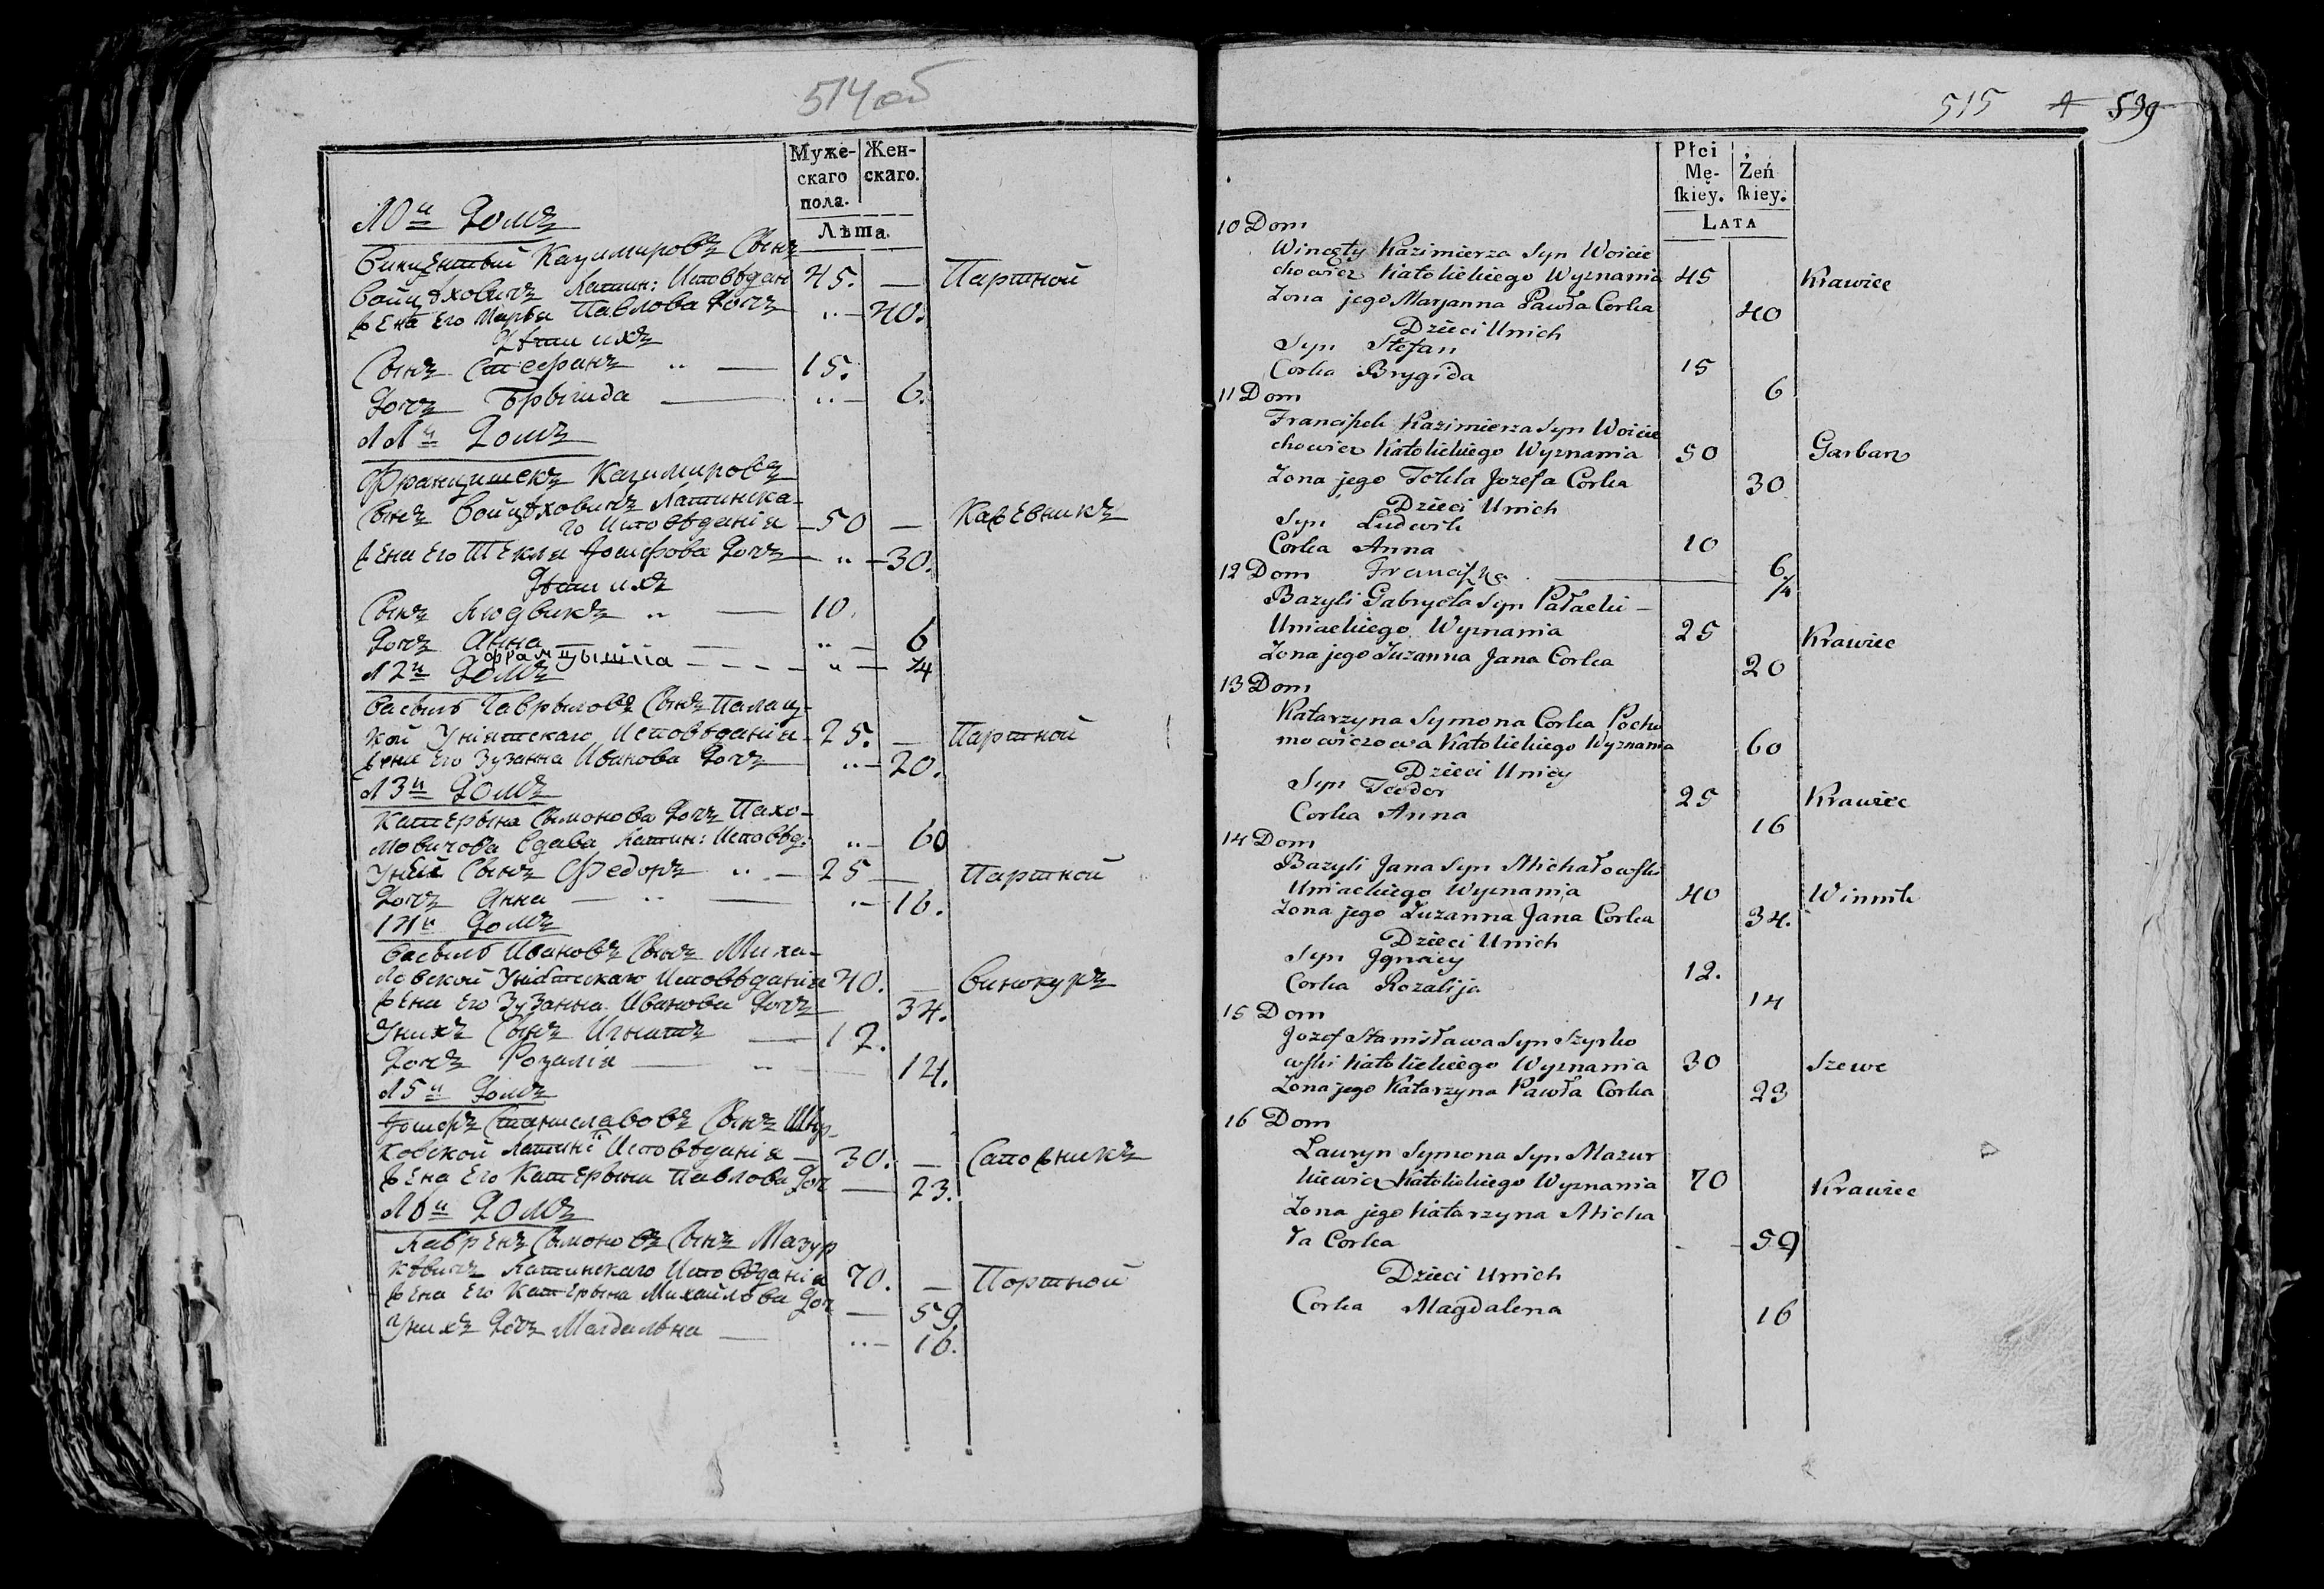 514 об
Муже- Жен-
скаго скаго.
пола.
Лѣта.
10й Домъ
Винцентый Казимировъ Сынъ
Войцѣховичъ Латин: Исповѣдан 45. — Партной
жена Его Марья Павлова Дочъ 40.
Дѣти ихъ
Сынъ Стефанъ 15.
Дочъ Брыгида 6.
11й Домъ
Францишекъ Казимировъ
Сынъ Войцѣховичъ Латинска-
го Исповѣданія 50 — Кажевникъ
жена Его Текля Іосифова Дочъ 30.
Дѣти ихъ
Сынъ Людвикъ 10.
Дочъ Анна 6
Францышка 4
12й Домъ
Василь Гаврыловъ Сынъ Палац-
кой Уніятскаго Исповѣданія 25. — Партной
жена Его Зузанна Иванова Дочъ 20.
13й Домъ
Катерына Сымонова Дочъ Пахо-
мовичова вдава Латин: Исповѣд: 60
Унѣй Сынъ Федоръ 25 — Партной
Дочъ Анна 16.
14й Домъ
Василь Ивановъ Сынъ Миха-
ловской Уніятскаго Исповѣданія 40. — Винокуръ
жена Его Зузанна Иванова Дочъ 34.
Унихъ Сынъ Игнатъ 12.
Дочъ Розалія 14.
15й Домъ
Іосифъ Станиславовъ Сынъ Шыр-
ковской Латинс Исповѣданія 30. — Сапожникъ
жена Его Катерына Павлова Доч 23.
16й Домъ
Лаврѣнъ Сымоновъ Сынъ Мазур
кѣвичъ Латинскаго Исповѣданія 70. — Портной
жена Его Катерына Михайлова Доч 59
Унихъ Дочъ Магдальна 16.
515 539
Płci Żeń
Mę- ſkiey.
ſkiey.
LATA
10 Dom
Wincęty Kazimierza Syn Woicie
chowicz Katolickiego Wyznania 45 Krawiec
Zona jego Marjanna Pawła Corka 40
Dzieci Unich
Syn Stefan 15
Corka Brygida 6
11 Dom
Franciſzek Kazimierza Syn Woicie
chowicz Katolickiego Wyznania 50 Garbarz
Zona jego Tekla Jozefa Corka 30
Dzieci Unich
Syn Ludwik 10
Corka Anna 6
12 Dom Franciſzka 4
Bazyli Gabryela Syn Pałacki –
Uniackiego Wyznania 25 Krawiec
Zona jego Zuzanna Jana Corka 20
13 Dom
Katarzyna Symona Corka Pocho
mowiczowa Katolickiego Wyznania 60
Dzieci Unicy
Syn Teodor 25 Krawiec
Corka Anna 16
14 Dom
Bazyli Jana Syn Michałowſki
Uniackiego Wyznania 40 Winnik
Zona jego Zuzanna Jana Corka 34.
Dzieci Unich
Syn Jgnacy 12.
Corka Rozalija 14
15 Dom
Jozef Stanisława Syn Szyrko
wſki Katolickiego Wyznania 30 Szewc
Zona jego Katarzyna Pawła Corka 23
16 Dom
Lauryn Symona Syn Mazur
kiewicz Katolickiego Wyznania 70 Krawiec
Zona jego Katarzyna Micha
ła Corka 59
Dzieci Unich
Corka Magdalena 16